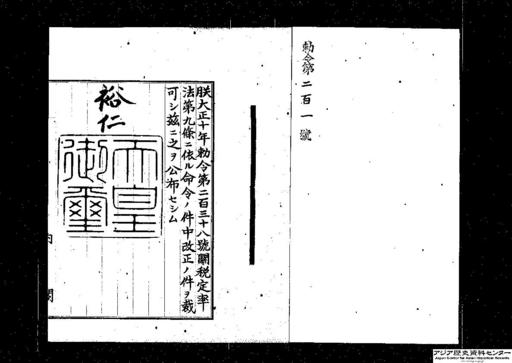 勅令第二百一號
朕大正十年勅令第二百三十八號關税定率
法第九條ニ依ル命令ノ件中改正ノ件ヲ裁
可シ茲ニ之ヲ公布セシム
裕仁
天皇
御璽
内閣
アジア歴史資料センター
Japan Center for Asian Historical Records